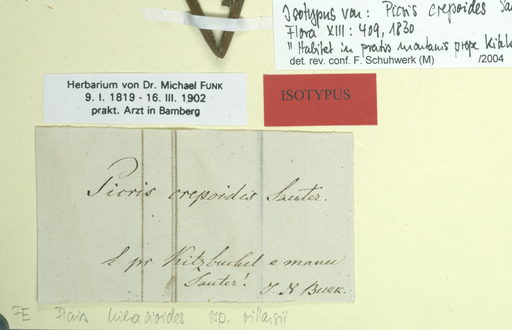 Isotypus von: Picris crepoides
Flora XIII: 409, 1830
"Habitat in pratis montanis prope
det. rev. conf. F. Schuhwerk (M) /2004
Herbarium von Dr. Michael FUNK
9. I. 1819 - 16. III. 1902
prakt. Arzt in Bamberg
ISOTYPUS
Picris crepoidis Sauter.
pr Kitzbuhel e manu
Sauter!
Picris hieracioides ssp. villarsii